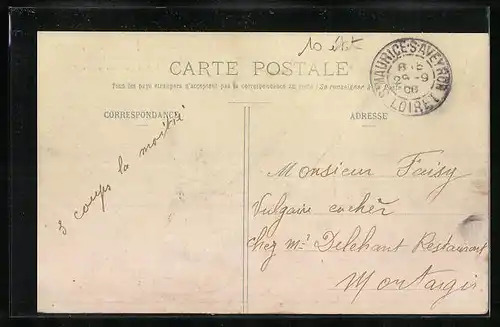 10 été
CARTE POSTALE
Tous les pays étrangers n'acceptent pas la correspondance au recto (Se renseigner à la Poste)
CORRESPONDANCE
ADRESSE
ST MAURICE-S-AVEYRON
29-9
08
LOIRET
3 coups la moitié
Monsieur Faisy
Vulgaire cocher
chez Mr Delehant Restaurant
Montargis